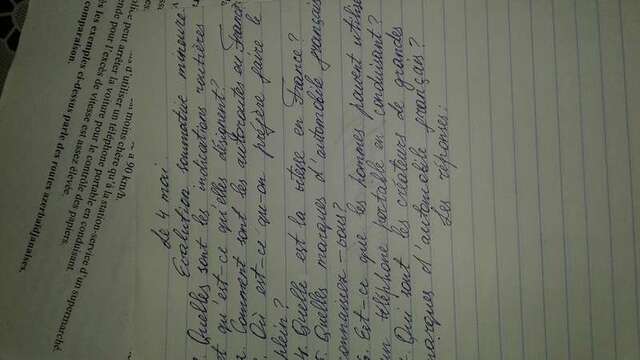 à 90 km/h.
moins chère qu'à la station-service d'un supermarché.
d'utiliser un téléphone portable en conduisant.
peut arrêter la voiture pour le contrôle des papiers.
pour l'excès de vitesse est assez élevée.
les exemples ci-dessus parle des routes azerbaïdjanaises.
comparaison.
Le 4 mai.
Evalution sommative mineure.
Quelles sont les indications routières
t qu'est-ce qu'elles désignent?
Comment sont les autoroutes en France
Où est-ce qu-on préfère faire le
plein?
4. Quelle est la vitesse en France?
5. Quelles marques d'automobile français
connaissez-vous?
6. Est-ce que les hommes peuvent utiliser
un téléphone portable en conduisant?
Qui sont les créateurs de grandes
marques d'automobile français?
Les réponses: